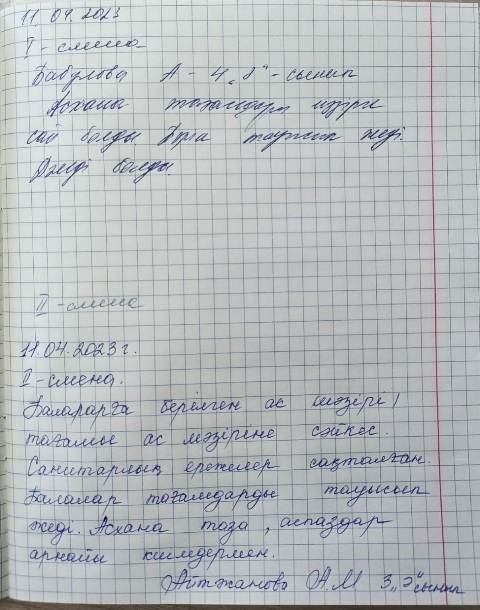 11.04.2023
I - смена
Бабулова А - 4 „Ə" - сынып
Асхана тағамдары мәзірге
сай болды. Бәрі тауысып жеді.
Дәмді болды.
II - смена
11.04.2023 г.
I - смена.
Балаларға берілген ас мәзірі,
тағамы ас мәзіріне сәйкес.
Санитарлық ережелер сақталған.
Балалар тағамдарды тауысып
жеді. Асхана таза, аспаздар
арнайы киімдермен.
Айтжанова А.М 3 „Ə" сынып